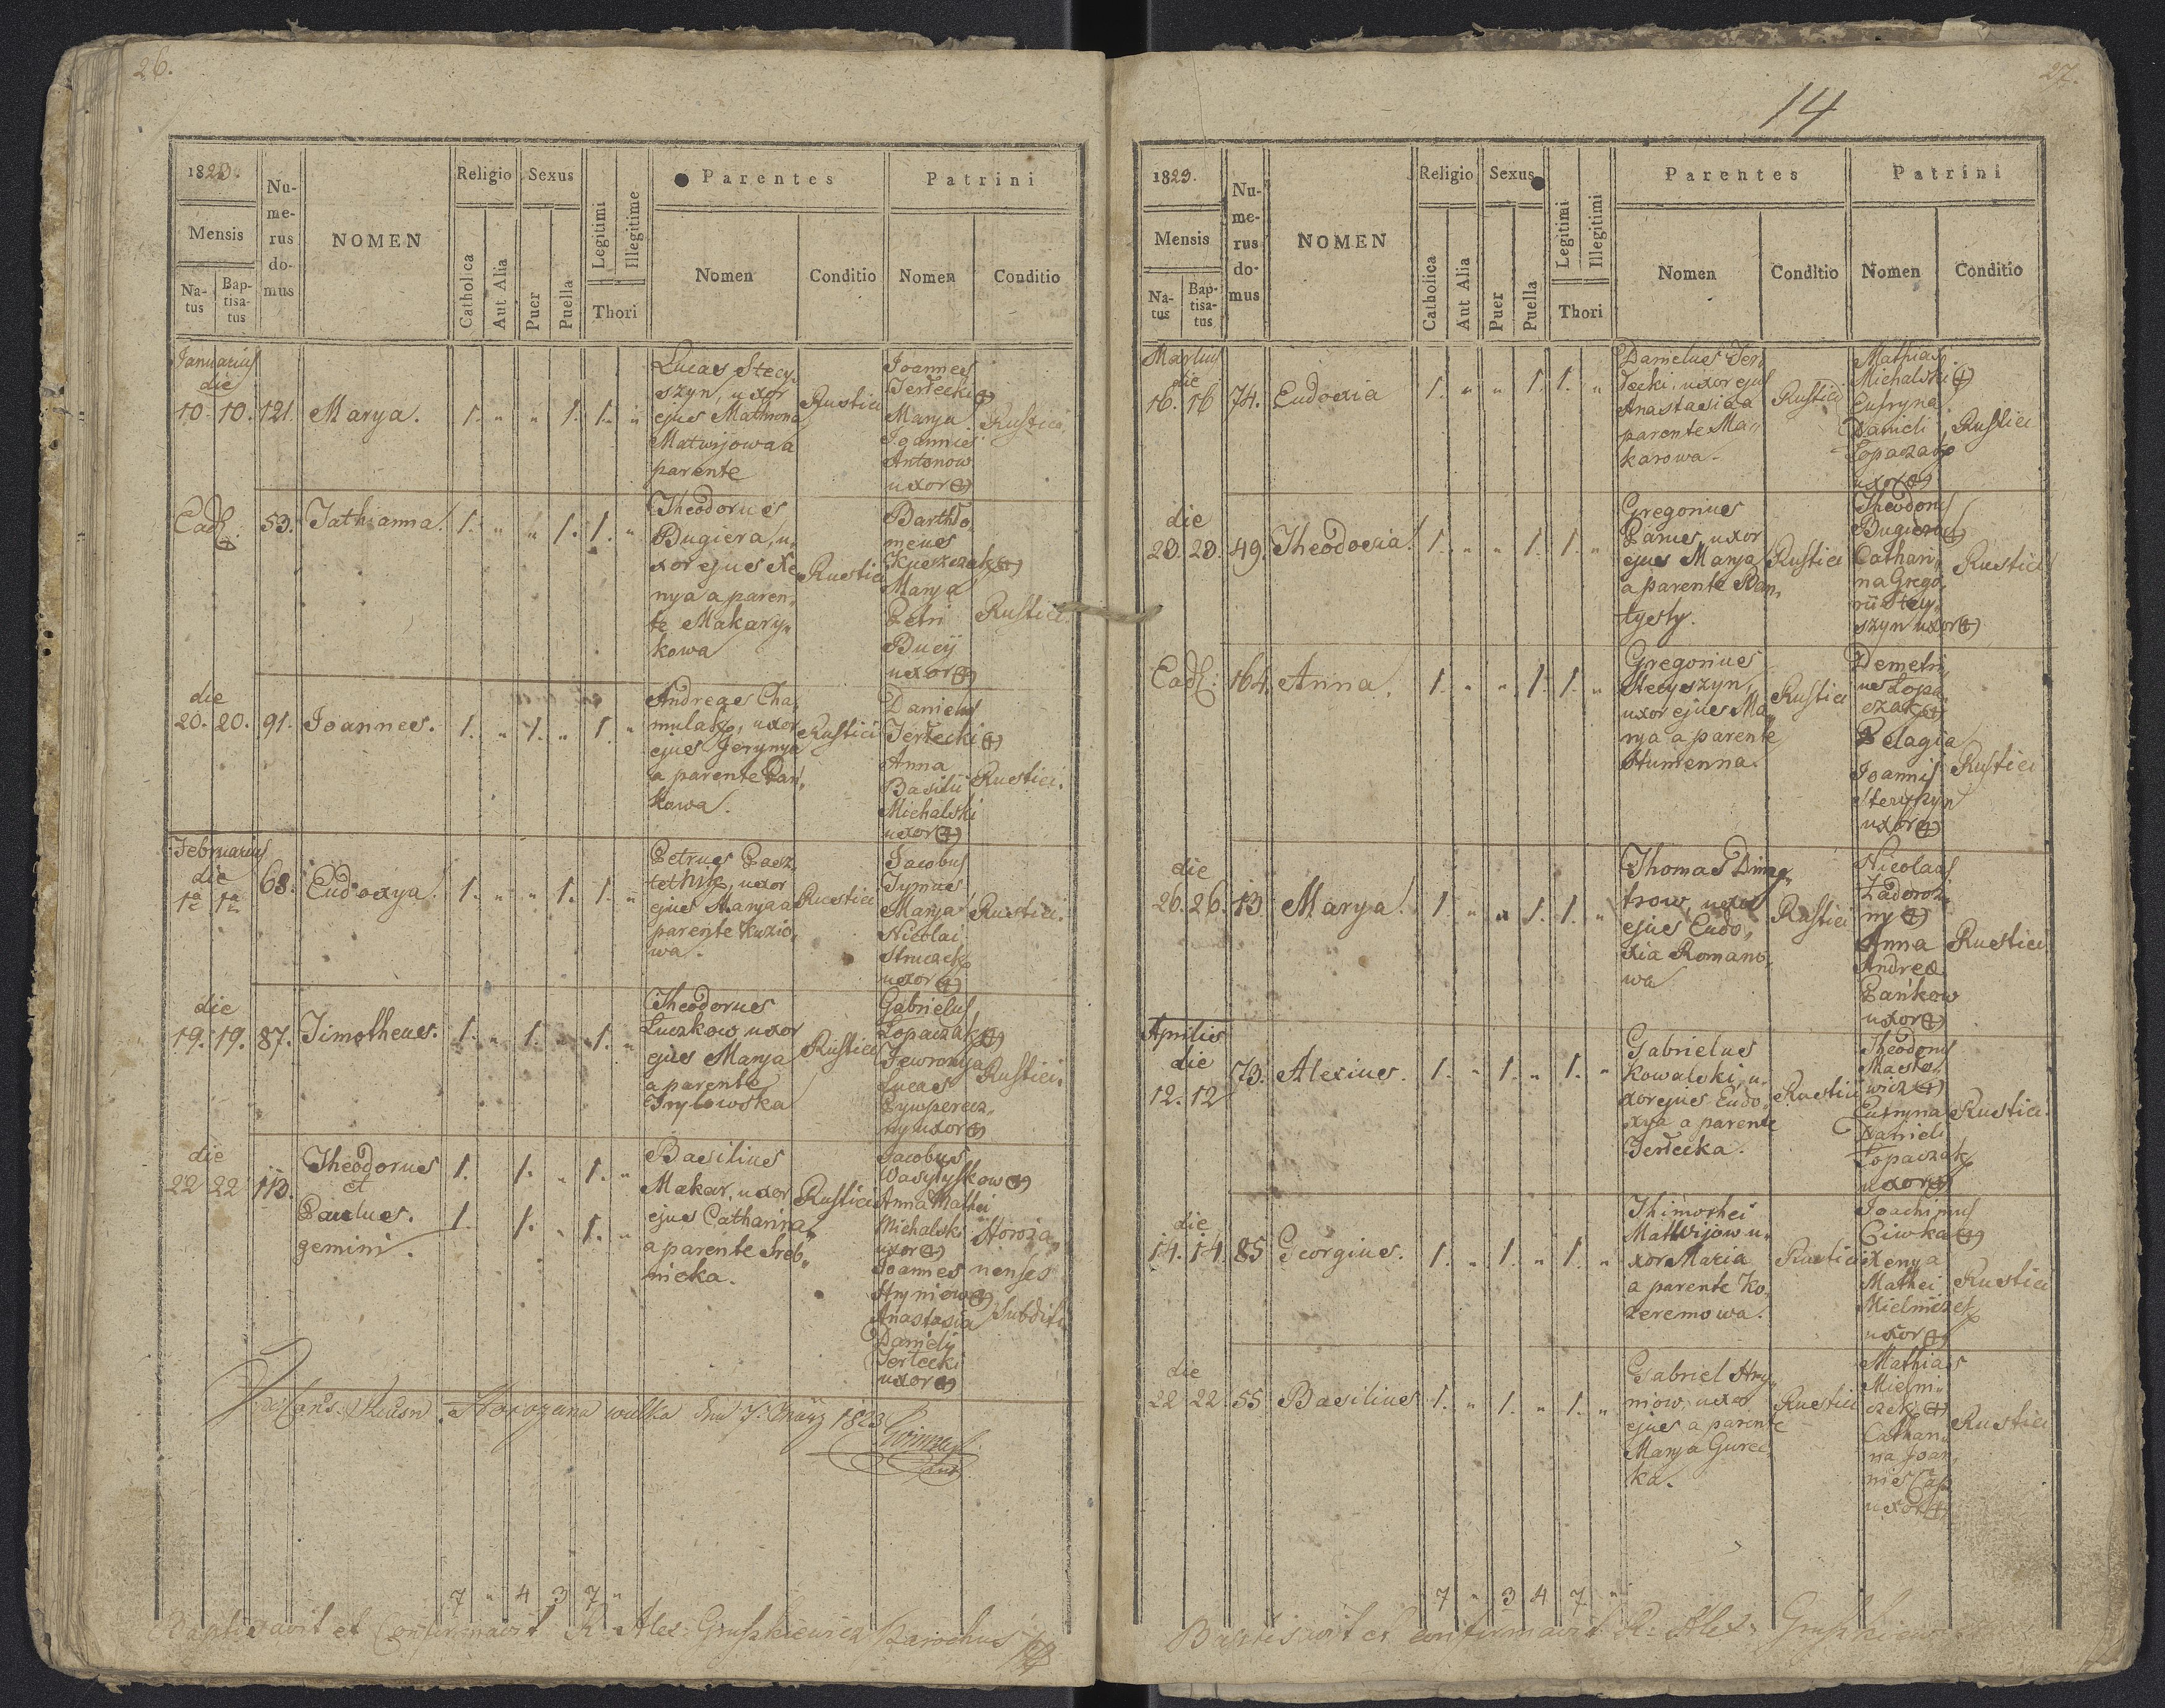 26.
1823.
Mensis
Na-
tus
Bap-
tisa-
tus
Nu-
me-
rus
do-
mus
NOMEN
Religio
Catholica
Aut Alia
Sexus
Puer
Puella
Legitimi
Illegitime
Thori
Parentes
Nomen
Conditio
Patrini
Nomen
Conditio
Januarius
die
10. 10. 121. Marya. 1. " " 1. 1. "
Lucas Stecy,
szyn, uxor
ejus Matrona
Matwijowa a
parente
Rustici
Joannes
Jerłecki (+)
Marya
Joannis
Antonow
uxor (+)
Rustici
Ead: 53. Tathianna. 1. " " 1. 1. "
Theodorus
Bugiera, u,
xor ejus Xe,
nya a paren,
te Makary,
kowa
Rustici
Bartho
meus
Marya
Petri
Bucij
uxor (+)
Rustici.
die
20. 20. 91. Joannes. 1. " 1. " 1. "
Andreas Cha,
mulak, uxor
ejus Jerynya
a parente Pań,
kowa.
Rustici
Daniel
Jerłecki (+)
Anna
Basilii
Michalski
uxor (+)
Rustici.
Februarius
die
1a 1a 68. Eudoxya. 1. " " 1. 1. "
Petrus
uxor
ejus Marya a
parente Kuzio,
wa.
Rustici
Jacobus
Tymus
Marya
Nicolai
uxor (+)
Rustici.
die
19. 19. 87. Timotheus. 1. " 1. " 1. "
Theodorus
Luczkow uxor
ejus Marya
a parente
Rustici
Gabrielus
Łopaczak (+)
Jewronya
Lucas
ny uxor (+)
Rustici.
die
22 22 113. Theodorus 1. 1. " 1. "
et
Paulus. 1 1. " 1. "
gemini.
Basilius
Makar, uxor
ejus Catharina,
a parente Sreb,
nicka.
Rustici
Jacobus
Wasylyszkow (+)
Anna Mathei
Michalski
uxor (+)
Joannes
Hryniow (+)
Anastasia
Danieli
Jerłecki
uxor (+)
Horoża,
nenses
Subditi
Horozana wulka 1823
7 " 4 3 7 "
Baptisavit et Confirmavit R. Alex: Gruszkiewicz Parochus
27.
14
1823.
Mensis
Na-
tus
Bap-
tisa-
tus
Nu-
me-
rus
do-
mus
NOMEN
Religio
Catholica
Aut Alia
Sexus
Puer
Puella
Legitimi
Illegitimi
Thori
Parentes
Nomen
Conditio
Patrini
Nomen
Conditio
Martius
die
16. 16 74. Eudoxia 1. " " 1. 1. "
Danielus Jer,
łecki, uxor ejus
Anastasia a
parente Ma,
karowa.
Rustici
Mathias
Michalski (+)
Eufryna
Danieli
Łopaczak
uxor (+)
Rustici
die
23. 23. 49. Theodosia. 1. " " 1. 1. "
Gregorius
uxor
ejus Marya
a parente Ran,
tyesty.
Rustici
Theodorus
Bugiera (+)
Cathari,
na Grego,
rii Stey,
szyn uxor (+)
Rustici
Ead: 164. Anna. 1. " " 1. 1. "
Gregorius
Stecyszyn,
uxor ejus Ma,
rya a parente
Humenna.
Rustici
Demetri,
us Łopa,
czak (+)
Pelagia
Joannis
Stecyszyn
uxor (+)
Rustici
die
26. 26. 13. Marya. 1. " " 1. 1. "
Thomas Dmy,
trow, uxor
ejus Eudo,
xia Romano,
wa
Rustici
Nicolaus
Zadoroż,
ny (+)
Anna
Andreæ
Pańkow
uxor (+)
Rustici.
Aprilis
die
12. 12 73. Alexius. 1. " 1. " 1. "
Gabrielus
Kowalski, u,
xor ejus Eudo,
xya a parente
Jerłecka.
Rustici
Theodorus
Masło,
wicz (+)
Eufryna
Danieli
Łopaczak
uxor (+)
Rustici.
die
14. 14. 85 Georgius. 1. " 1. " 1. "
Thimothei
Matwijow u,
xor Maria
a parente Ko,
zeremowa.
Rustici
Joachimus
Ciwka (+)
Xenya
Mathei
Mielniczek
uxor (+)
Rustici
die
22 22. 55 Basilius. 1. " 1. " 1. "
Gabriel Hry,
niow, uxor
ejus a parente
Marya Gurec,
ka.
Rustici
Mathias
Mielni,
czek (+)
Cathari,
na Joan,
nis
uxor (+)
Rustici
7 " 3 4 7 "
Baptisavit et confirmavit R: Alex: